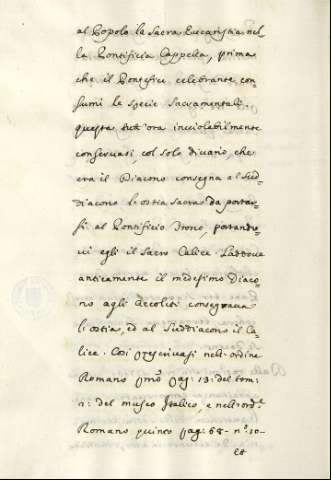 al Popolo la Sacra Eucaristia nel
la Pontificia Cappella, prima
che il Pontefice celebrante con
sumi le specie Sacramentali.
questa tutt'ora inviolabilmente
conservasi, col solo divario, che
ora il Diacono consegna al Sud
diacono l'ostia Sacra da portar
si al Pontificio Trono, portando
ci egli il Sacro Calice. Laddove
anticamente il medesimo Diaco
no agli Accoliti consegnava
l'ostia, ed al Suddiacono il Ca
lice. Così prescrivasi nell'ordine
Romano pmo pag: 13: del tom:
2: del museo Italico, e nell'ord.e
Romano quinto pag: 68. n.o 10-
et